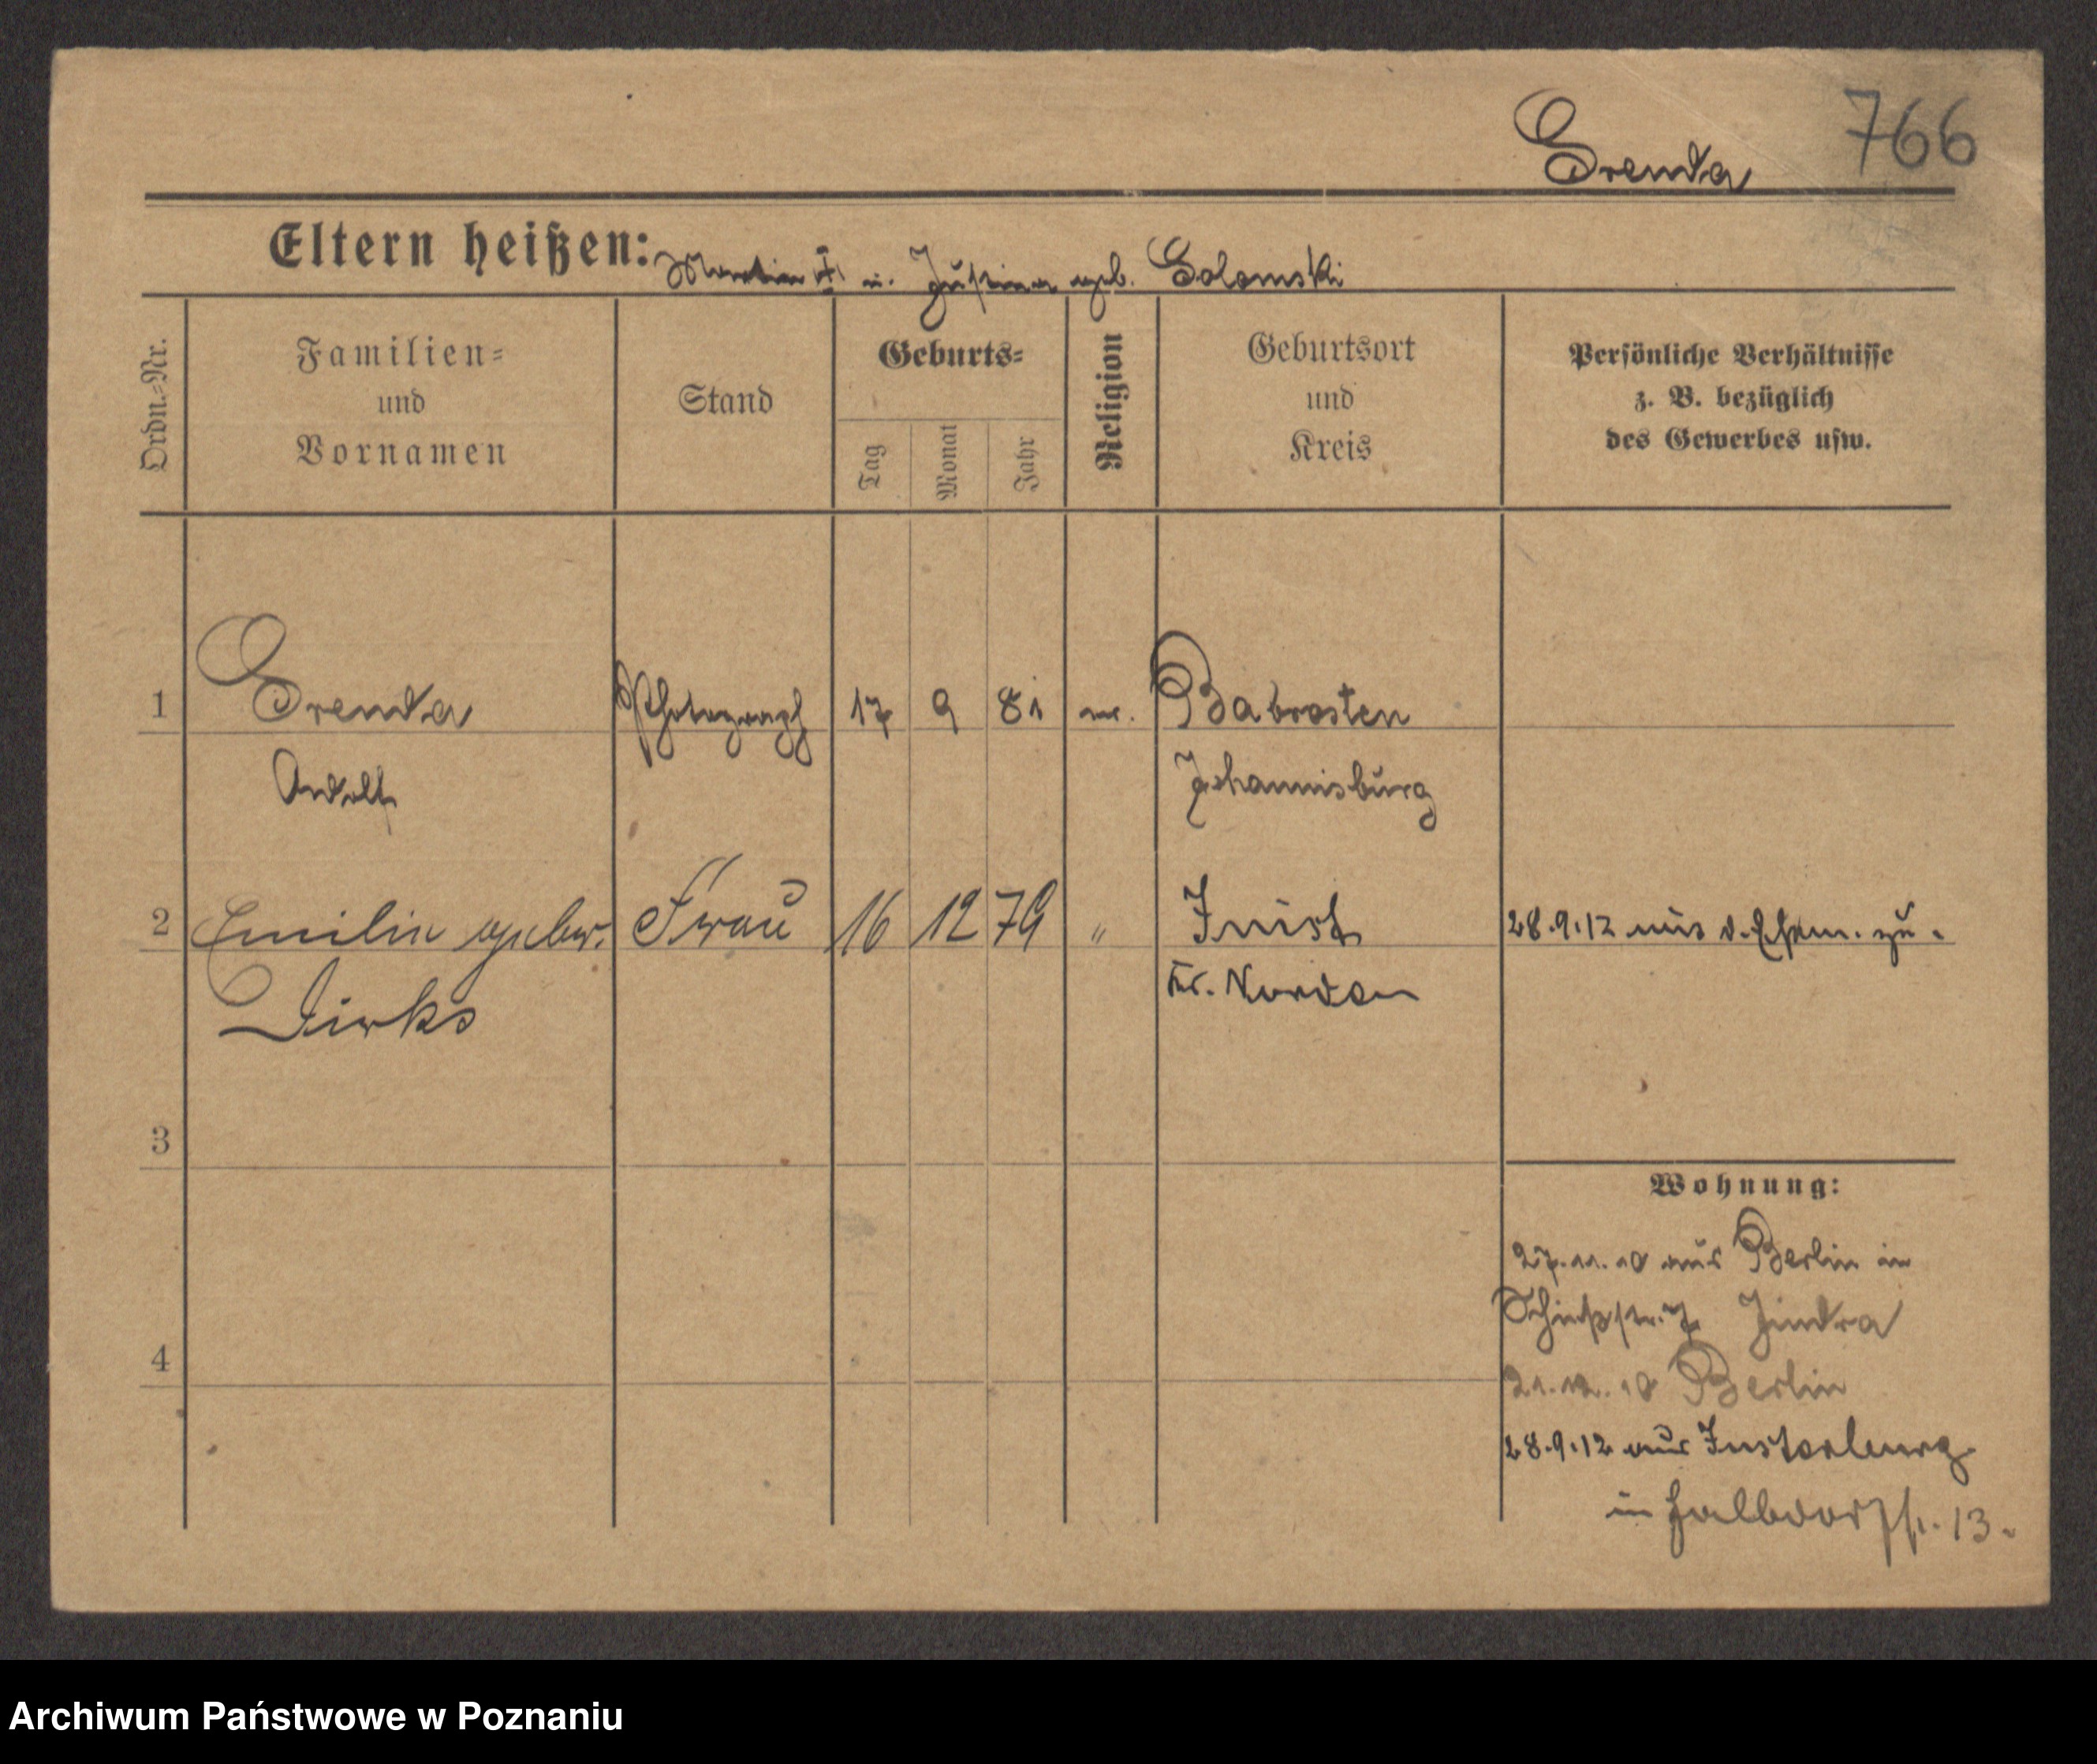 766
Grenda
Eltern heißen: Martin † u. Justine geb. Golomski
Ordn.-Nr.
Familien-
und
Vornamen
Stand
Geburts-
Tag
Monat
Jahr
Religion
Geburtsort
und
Kreis
Persönliche Verhältnisse
z. B. bezüglich
des Gewerbes usw.
1 Grenda Photograph 17 9 81 ev. Babrosten
Adolf Johannisburg
2 Emilie gebor. Frau 16 12 79 " Juist 28.9.12 mit d. Ehem. zu.
Dirks Kr. Norden
3
Wohnung:
27.11.10 aus Berlin in
Schießstr. 7 Jindra
4
21.12.10 Berlin
28.9.12 aus Insterburg
in Halbdorfst. 13.
Archiwum Państwowe w Poznaniu